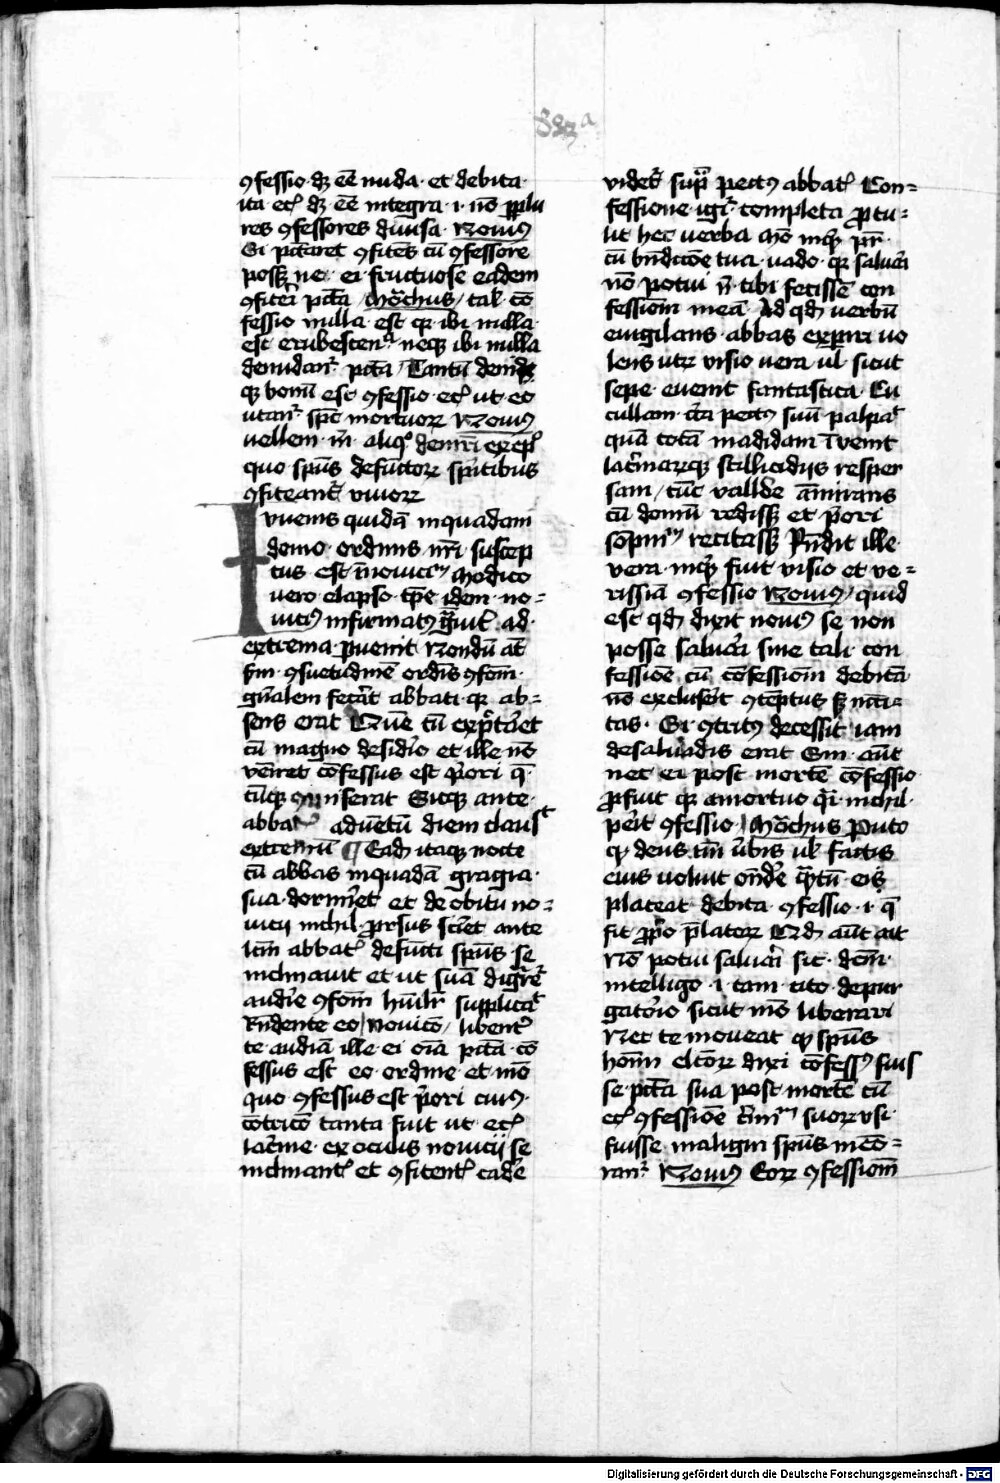 ꝯfessio dꝫ eē nuda et debita
ita ecꝭ dꝫ eē integra ·i· nō ꝑ plu
res ꝯfessores diuisa Nouiꝰ
Si pc̄taret ꝯfitens cū ꝯfessore
possꝫ ne ei fructuose eadem
ꝯfiteri pc̄ta / Mo̅chus / tal̕ cō
fessio nulla est qꝛ ibi nulla
est erubescencꝭ neqꝫ ibi nulla
denudant᷑ pc̄ta / Tantū deniqꝫ
qꝫ bonū est ꝯfessio ecꝭ ut eo
utant᷑ spūs mortuoꝝ Nouiꝰ
uellem m̄ aliqͦ demri exēpl̕
quo spūs defunctoꝝ spiritibus
ꝯfiteant᷑ uiuoꝝ
Iuuenis quidā in quadam
domo ordinis nr̄i suscep
tus est in nouiciū Modico
uero elapso tꝑe idem no=
uiciꝰ infirmatꝰ g̅uit᷑ ad
extrema ꝑuenit Nondū at̄
ẜm ꝯsuetudinē ordīs ꝯfom̄
gn̄alem fecāt abbati qꝛ ab=
sens erat Quē cū exp̄ctāet
cū magno desidīo et ille nō
veniret cōfessus est p̄ori q̄
cūqꝫ ꝯmiserat Sicqꝫ ante
abbatꝭ aduētū diem clausͭ
extremū ¶ Eadꝫ itaqꝫ nocte
cū abbas in quadā grāgia
sua dormīet et de obitu no=
uicij nichil ꝓrsus scīet ante
lcm̄ abbatꝭ defuncti spūs se
inclinauit et ut suā digr̄et᷑
audīe ꝯfom̄ hūilr̄ supplicaͭ
Rn̄dente eo / Nouico / libent᷑
te audiā ille ei oīa pc̄ta cō
fessus est eo ordine et mō
quo ꝯfessus est p̄ori cuiꝰ
cōtricō tanta fuit ut ecꝭ
lac̄me ex oculis nouicij se
inclinantꝭ et ꝯfitentꝭ cadē
videt᷑ supᷓ pectꝰ abbatꝭ Con=
fessione igit᷑ completa ꝓtu=
lit hec uerba Mō inqͥꝫ pr̄
cū bn̄dictōe tua uado qꝛ saluari
nō potui n̄ tibi fecissē con
fessiom̄ meā Ad qd̕ uerbū
euigilans abbas experiri uo
lens utꝝ visio uera ul̕ sicut
sepe euenit fantastica Cu
cullam c̄ta pectꝰ suū palpaͭ
quā totā madidam īvenit
lac̄marꝝqꝫ stillicidijs resper
sam / tūc vallde āmirans
cū domū redissꝫ et p̄ori
sōpniū recitassꝫ Rn̄dit ille
vera inqͥꝫ fuit visio et ve=
rissīa ꝯfessio Nouiꝰ / quid
est qd̕ dixit nouiꝰ se non
posse saluari sine tali con
fessiōe cū cōfessiom̄ debitā
nō exclusēit ꝯtēptus sꝫ ncc̄i=
tas · Si ꝯtritꝰ decessit iam
de saluādis erat Sin aūt
nec ei post mortē cōfessio
ꝓfuit qꝛ a mortuo q̄i nichil
perit ꝯfessio / Mo̅chus Puto
qͥ deus tm̄ ūbis ul̕ factis
eius uoluit on̄dē qͣtū ei
placeat debita ꝯfessio ·i· q̄
fit ꝓpō p̄latoꝝ Qd̕ aūt ait
Nō potui saluari sic dcm̄
intelligo ·i· tam cito de pur
gatōio sicut mō liberari
Nec te moueat qͥ spūs
homī elcōꝝ dixi cōfessꝰ fuis
se pc̄ta sua post mortē cū
ecꝭ ꝯfessiōe c̄mī suoꝝ usi
fuisse maligni spūs mēo=
rant᷑ Nouiꝰ Eoꝝ ꝯfessiom̄
Digitalisierung gefördert durch die Deutsche Forschungsgemeinschaft - DFG